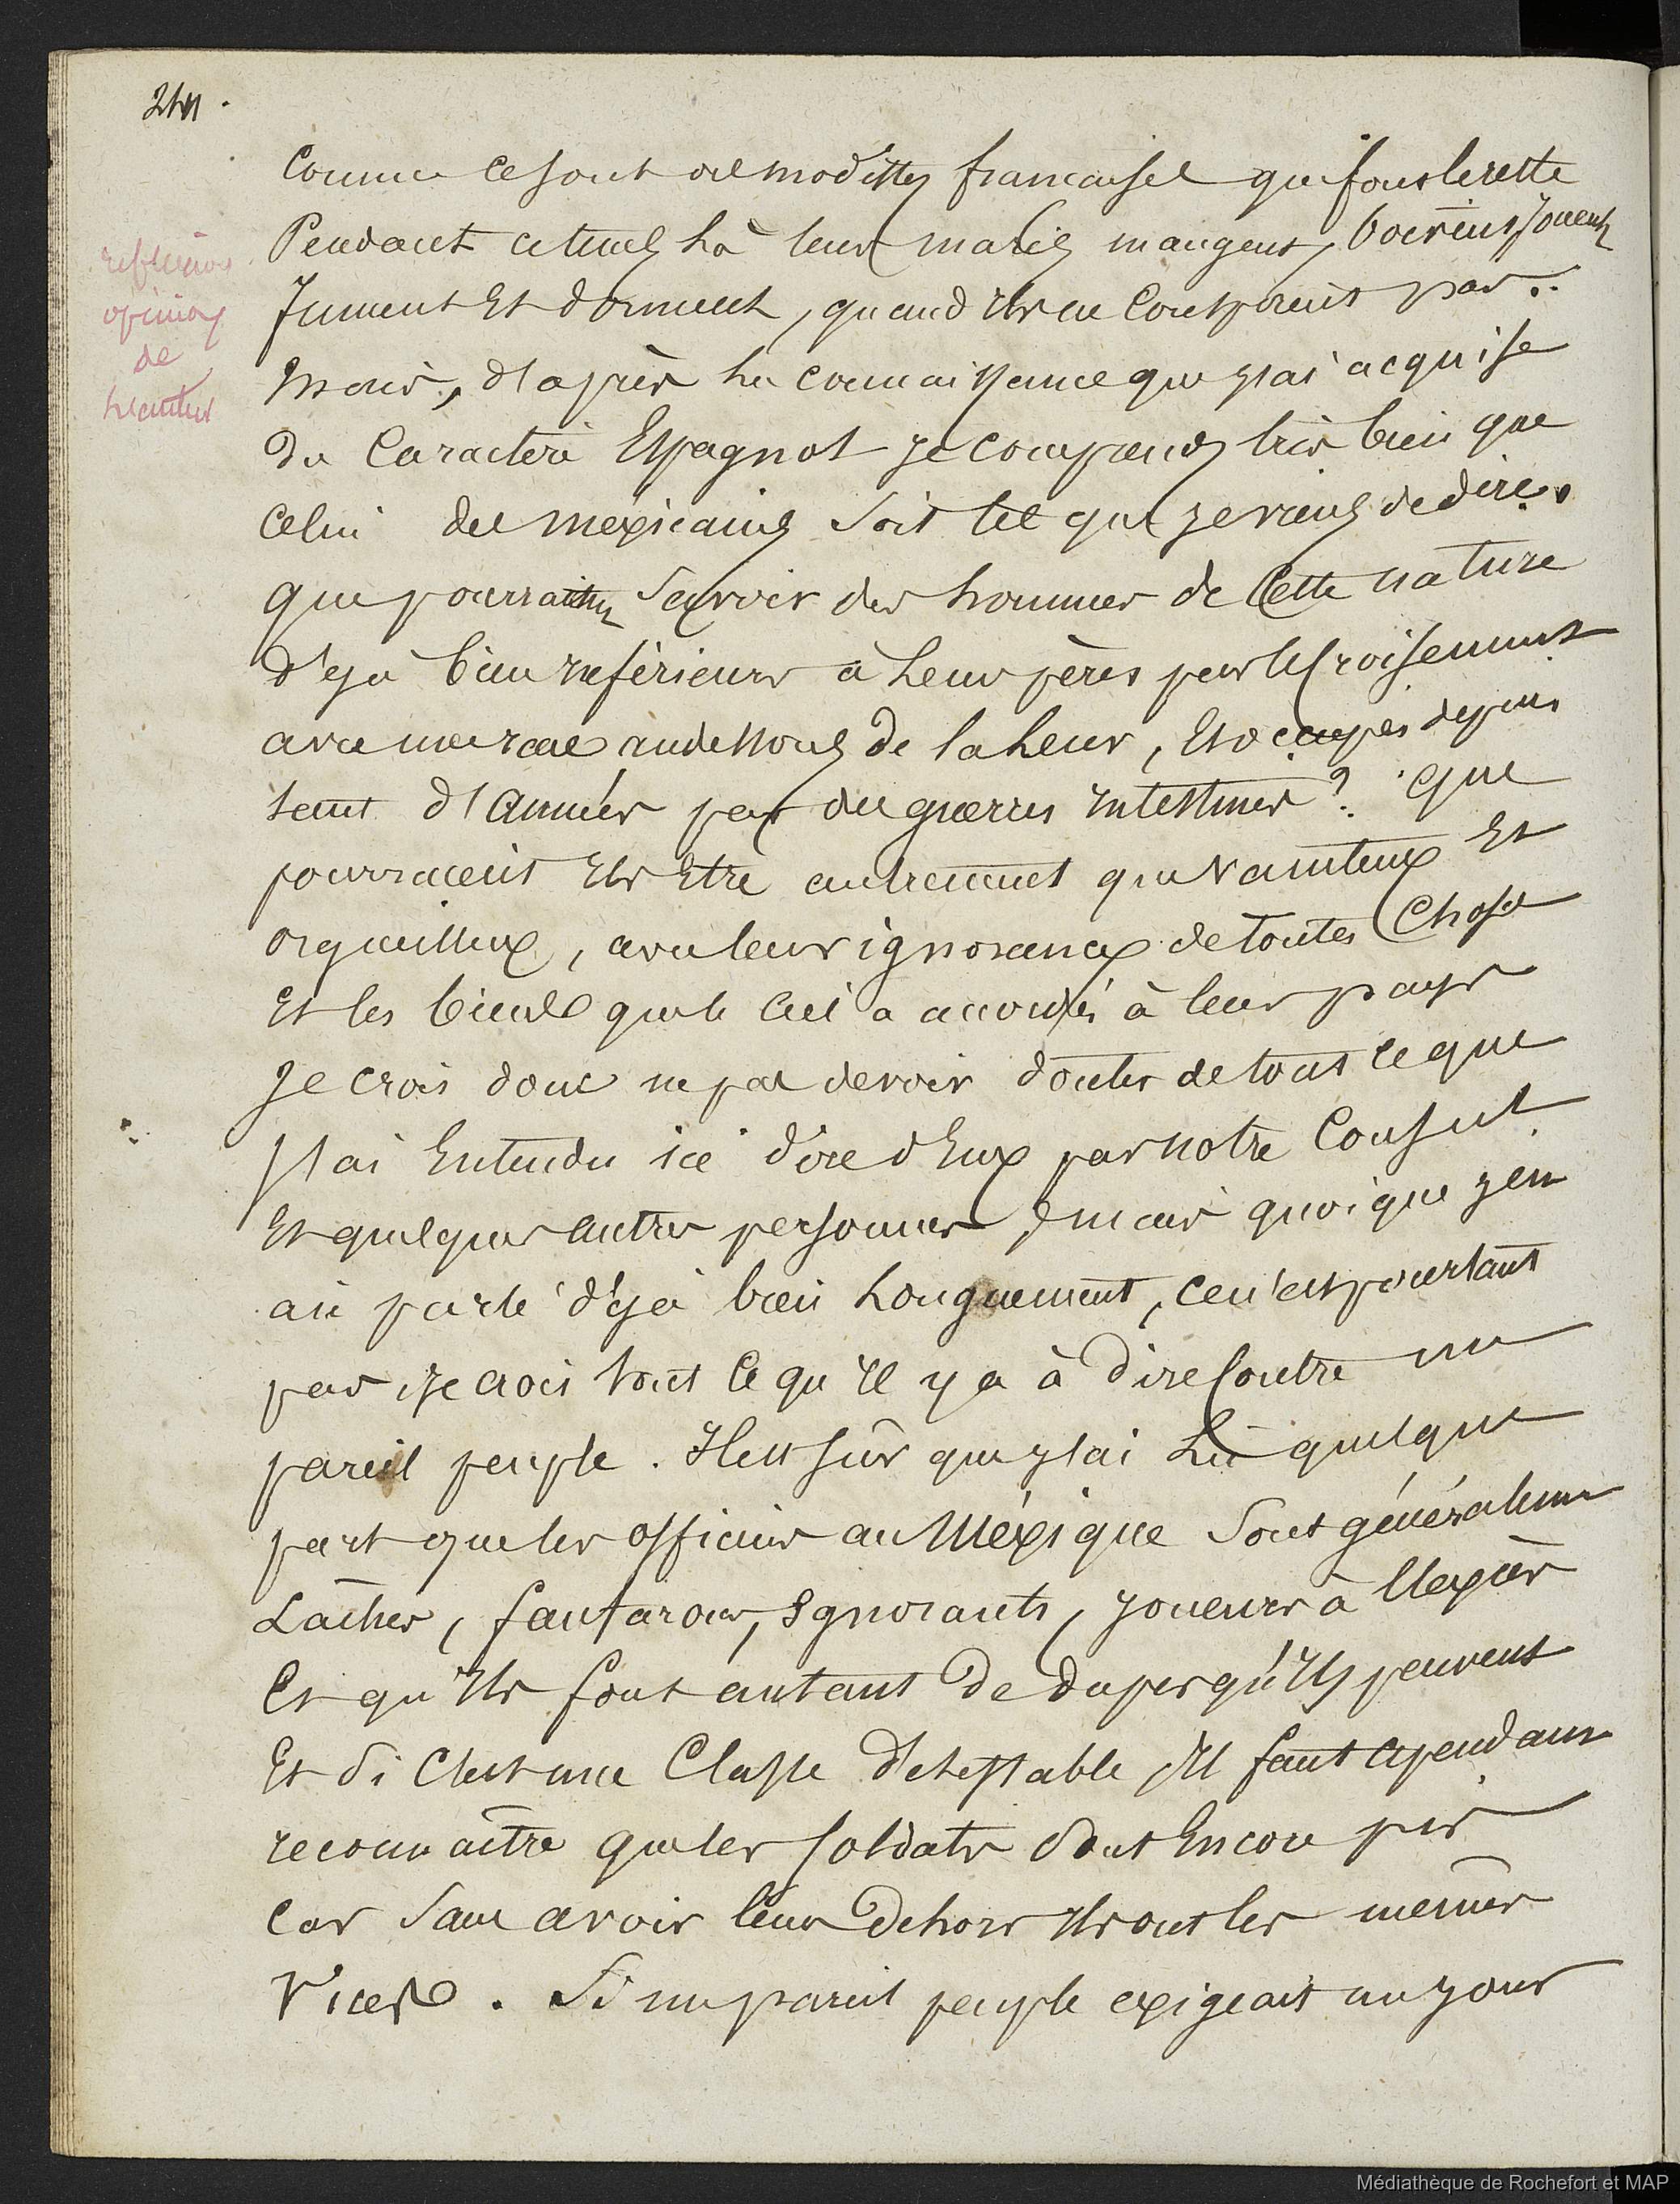 Comme ce sont des modistes francaises qui font le reste
Pendant ce tems là leurs maris mangent, boivent, jouent
fument Et dorment, quand ils ne Conspirent pas..
Mais, d'après la connaissance que j'ai acquise
du Caractère Espagnol je comprends très bien que
Celui des mexicains soit tel que je viens de dire.
que pourraient savoir des hommes de Cette nature
déjà bien inférieurs à leurs pères par le Croisement
avec une race au dessous de la leur, Et occupés depuis
tant d'années par des guerres intestines? que
pourraient Ils Etre autrement que vaniteux Et
orgueilleux, avec leur ignorance de toutes Choses
Et les biens que le Ciel a accordés à leur pays
Je crois donc ne pas devoir douter de tout ce que
J'ai Entendu ici dire d'Eux par notre Consul
Et quelques autres personnes, mais quoique j'en
ai parlé déjà bien Longuement, ce n'est pourtant
pas je crois tout ce qu'Il y a à dire Contre un
pareil peuple. Il est sûr que j'ai Lu quelque
part que les officiers au Méxique sont généralem
Lâches, fanfarons, Ignorants, joueurs à l'excès
Et qu'Ils font autant de dupes qu'Ils peuvent
Et Si C'est une Classe détestable, Il faut cependant
reconnaître que les soldats sont Encore pis
Car Sans avoir leurs dehors Ils ont les mêmes
Vices. Si un pareil peuple exigeait un jour
opinion
de
l'auteur
Médiathèque de Rochefort et MAP